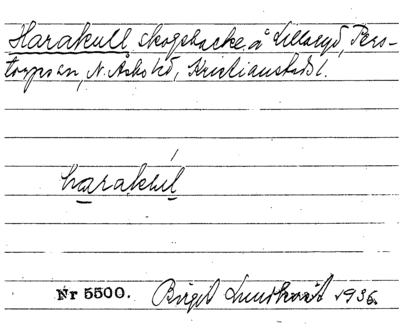 Harakull skogsbacke å Lillaryd, Pers-
torps sn, N. Åsbo hd, Kristianstads l.
harakul
Nr 5500. Birgit Lundkvist 1936.